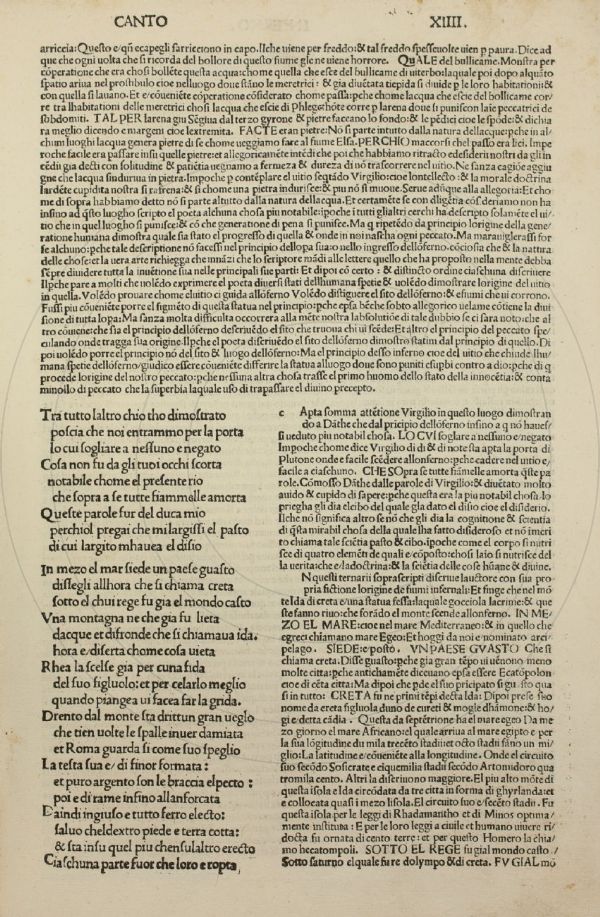 CANTO XIIII.
arriccia: Questo e/ qñ ecapegli sarricciono in capo. Ilche uiene per freddo: & tal freddo spesseuolte uien p paura. Dice ad
que che ogni uolta che si ricorda del bollore di questo fiume gle ne uiene horrore. QVALE del bullicame. Monstra per
cõperatione che era chosi bollẽte questa acqua: chome quella che esce del bullicame di uiterbo: laquale poi dopo alquãto
spatio ariua nel prostibulo cioe nelluogo doue stãno le meretrici: & gia diuẽtata tiepida si diuide p le loro habitationi: &
con quella si lauano. Et e/ cõueniẽte cõperatione cõsiderato chome passa: pche chome lacqua che esce del bollicame cor/
re tra lhabitationi delle meretrici chosi lacqua che escie di Phlegethõte corre p larena doue si puniscon laie peccatrici de
sobdomiti. TAL PER larena giu Sẽgiua dal terzo gyrone & pietre faccano lo fondo: & le pẽdici cioe le spõde: & dichia
ra meglio dicendo e margeni cioe lextremita. FACTE eran pietre: Nõ si parte intutto dalla natura dellacque: pche in al/
chuni luoghi lacqua genera pietre di se chome ueggiamo fare al fiume Elsa. PERCHIO maccorsi chel passo era lici. Impe
roche facile era passare insu quelle pietre: et allegoricamẽte intẽdi che poi che habbiamo ritracto edesiderii nostri da gli in
cẽdii gia decti con solitudine & patiẽtia uegniamo a fermeza & dureza di nõ trascorrere nel uitio. Ne sanza cagiõe aggiu
gne che lacqua sindurina in pietra: Impoche p contẽplare el uitio seqtãdo Virgilio: cioe lontellecto: & la morale doctrina
lardẽte cupidita nostra si rafrena: & si chome una pietra indurisce: & piu nõ si muoue. Serue adũque alla allegoria: Et cho
me di sopra habbiamo detto nõ si parte altutto dalla natura dellacqua. Et certamẽte se con dligẽtia cõsderiamo non ha
insino ad q̃sto luogho scripto el poeta alchuna chosa piu notabile: ipoche i tutti gli altri cerchi ha descripto solamẽte el ui/
tio che in quel luogho si punisce: & cõ che generatione di pena si punisce. Ma q̃ ripetẽdo da principio lorigine della gene/
ratione humana dimostra quale sia stato el progresso di quella & onde in noi nascha ogni peccato. Ma marauiglerassi for
se alchuno: pche tale descriptione nõ facessi nel principio dellopa sua: o nello ingresso dellonferno. cõciosia che & la natura
delle chose: et la uera arte richiegga che innãzi che lo scriptore mãdi alle lettere quello che ha proposto nella mente debba
sẽpre diuidere tutta la inuẽtione sua nelle principali sue parti: Et dipoi cõ certo: & distincto ordine ciaschuna discriuere
Ilpche pare a molti che uolẽdo exprimere el poeta diuersi stati dellhumana spetie & uolẽdo dimostrare lorigine del uitio
in quella. Volẽdo prouare chome eluitio ci guida allõferno Volẽdo distiguere el sito dellõferno: & efiumi che ui corrono.
Fussi piu cõueniẽte porre el figmẽto di questa statua nel principio: pche epsa bẽche sobto allegorico uelame cõtiene la diui
sione di tutta lopa: Ma sanza molta difficulta occorrera alla mẽte nostra labsolutiõe di tale dubbio se ci sara noto: che al
tro cõuene: che sia el principio dellõferno descriuẽdo el sito che truoua chi ui scẽde: Et altro el principio del peccato spe/
culando onde tragga sua origine. Ilpche el poeta discriuẽdo el sito dellõferno dimostro statim dal principio di quello. Di
poi uolẽdo porre el principio nõ del sito & luogho dellõferno: Ma el principio desso inferno cioe del uitio che chiude lhu/
mana spetie dellõferno/ giudico essere cõueniẽte differire la statua alluogo doue sono puniti esupbi contra a dio: pche di q̃
procede lorigine del nostro peccato: pche nessuna altra chosa trasse el primo huomo dello stato della innocẽtia: & conta
minoilo di peccato che la superbia laquale uso di trapassare el diuino precepto.
Tra tutto laltro chio tho dimostrato
poscia che noi entrammo per la porta
lo cui sogliare a nessuno e negato
Cosa non fu da gli tuoi occhi scorta
notabile chome el presente rio
che sopra a se tutte fiammelle amorta
Queste parole fur del duca mio
perchiol pregai che milargissi el pasto
di cui largito mhaueа el disio
In mezo el mar siede un paese guasto
dissegli allhora che si chiama creta
sotto el chui rege fu gia el mondo casto
Vna montagna ne che gia fu lieta
dacque et difronde che si chiamaua ida.
hora e/ diserta chome cosa uieta
Rhea la scelse gia per cuna fida
del suo figluolo: et per celarlo meglio
quando piangea ui facea far la grida.
Drento dal monte sta drittun gran ueglo
che tien uolte le spalle inuer damiata
et Roma guarda si come suo speglio
La testa sua e/ di finor formata:
et puro argento son le braccia el pecto:
poi e di rame infino allanforcata
Daindi ingiuso e tutto ferro electo:
saluo cheldextro piede e terra cotta:
& sta insu quel piu chensulaltro erecto
Ciaschuna parte fuor che loro e ropta
c Apta somma attẽtione Virgilio in questo luogo dimostran
do a Dãthe che dal pricipio dellõferno insino a q̃ nõ haues/
si ueduto piu notabil chosa. LO CVI soglare a nessuno e/ negato
Impoche chome dice Virgilio di di & di note sta apta la porta di
Plutone onde e facile scẽdere allonferno: pche cadere nel uitio e/
facile a ciaschuno. CHE SOpra se tutte fiãmelle amorta q̃ste pa
role. Cõmosso Dãthe dalle parole di Virgilio: & diuẽtato molto
auido & cupido di sapere: pche questa era la piu notabil chosa. lo
priegha gli dia elcibo del quale gla dato el disio cioe el disiderio.
Ilche nõ significa altro se nõ che gli dia la cognitione & scientia
di q̃sta mirabil chosa della quale lha fatto disideroso: et nõ imeri
to chiama tale sciẽtia pasto & cibo. ipoche come el corpo si nutri
sce di quatro elemẽti de quali e/ cõposto: chosi laio si nutrisce del
la uerita: che e/ ladoctrina: & la sciẽtia delle cose hũane & diuine.
N questi ternarii soprascripti discriue lauctore con sua pro
pria fictione lorigine de fiumi infernali: Et finge che nel mõ
te Ida di creta e/ una statua fessa: laquale gocciola lacrime: & que
ste fanno riuo: che forãdo el monte scende allonferno. IN ME/
ZO EL MARE: cioe nel mare Mediterraneo: & in quello che
egreci chiamano mare Egeo: Et hoggi da noi e/ nominato arci
pelago. SIEDE: e/ posto. VN PAESE GVASTO Che si
chiama creta. Disse guasto: pche gia gran tẽpo ui uẽnono meno
molte citta: pche antichamẽte diceuano epsa essere Ecatõpolon
cioe di cẽta citta: Ma dipoi che pde el suo pricipato si gu.sto qua
si in tutto: CRETA fu ne primi tẽpi decta Ida: Dipoi prese suo
nome da creta figluola duno de cureti & mogle dhãmone: & ho/
gi e/ detta cãdia. Questa da septẽtrione ha el mare egeo Da me/
zo giorno el mare Africano: el quale arriua al mare egipto e/ per
la sua lõgitudine du mila trecẽto stadii: et octo stadii fano un mi/
glio: La latitudine e/ cõueniẽte alla longitudine. Onde el circuito
suo secõdo Sosicrate e/ cinquemilia stadii secõdo Artomidoro qua
tromila cento. Altri la discriuono maggiore. El piu alto mõte di
questa isola e Ida circõdata da tre citta in forma di ghyrlanda: et
e collocata quasi i mezo lisola. El circuito suo e/ secẽto stadii. Fu
questa isola per le leggi di Rhadamantho et di Minos optima/
mente instituta: E per le loro leggi a ciuile et humano uiuere ri/
docta fu ornata di cento terre: et per questo Homero la chia/
mo hecatompoli. SOTTO EL REGE fu gial mondo casto.
Sotto saturno el quale fu re dolympo & di creta. FV GIAL mõ